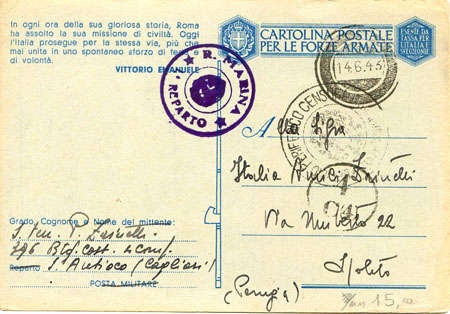 In ogni ora della sua gloriosa storia, Roma
ha assolto la sua missione di civiltà. Oggi
l'Italia prosegue per la stessa via, più che
mai unita in uno spontaneo sforzo di fede e
di volontà.
VITTORIO EMANUELE
CARTOLINA POSTALE
PER LE FORZE ARMATE
ESENTE DA
TASSA PER
L'ITALIA E
SPEDIZIONE
14.6.43
R. MARINA
REPARTO
Alla
Italia
Via Umberto 22
Spoleto
(Perugia)
Grado, Cognome e Nome del mittente:
S. Ten. P.
396 Btg. Cost. 4 Comp.
Reparto S. Antioco (Cagliari)
POSTA MILITARE
15,